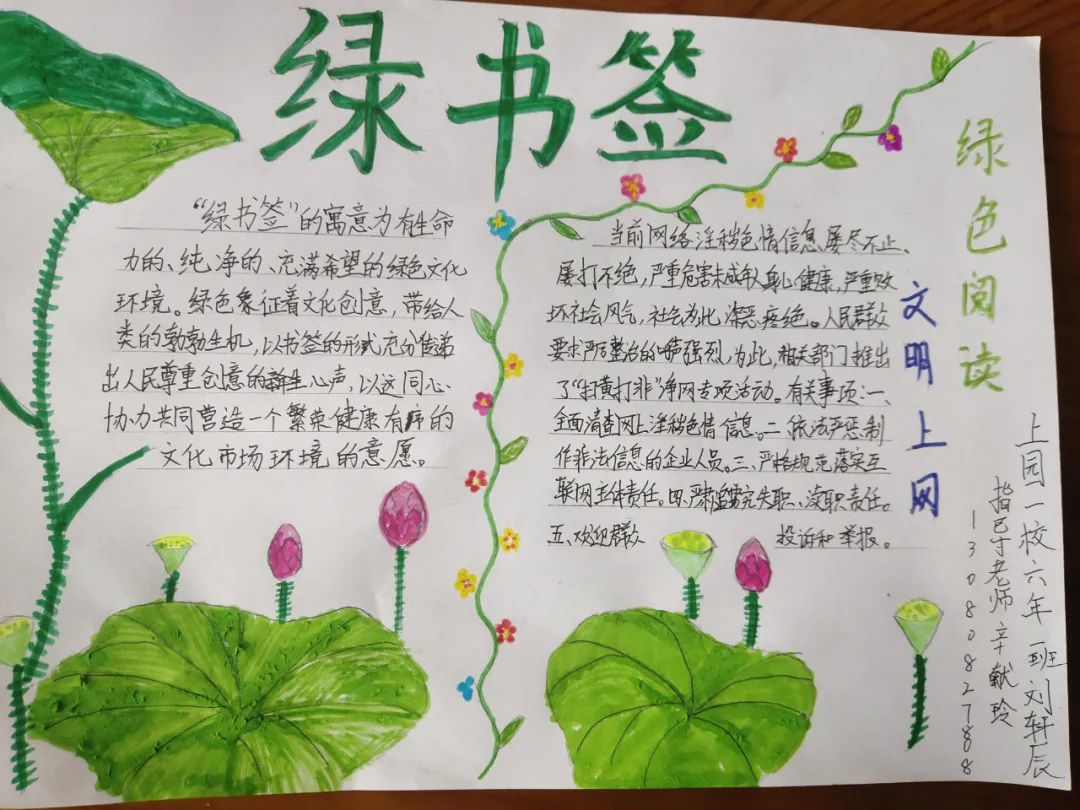 绿书签
“绿书签”的寓意为有生命
力的、纯净的、充满希望的绿色文化
环境。绿色象征着文化创意，带给人
类的勃勃生机，以书签的形式充分传递
出人民尊重创意的心声，以这同心
协力共同营造一个繁荣健康有序的
文化市场环境的意愿。
当前网络淫秽色情信息屡尽不止、
屡打不绝，严重危害未成年人身心健康，严重败
坏社会风气，社会为此深恶疼绝。人民群众
要求严厉整治的呼声强烈，为此，相关部门推出
了“扫黄打非”净网专项活动。有关事项：一、
全面清查网上淫秽色情信息。二、依法严惩制
作非法信息的企业人员。三、严格规范落实互
联网主体责任。四、严肃追究失职、渎职责任。
五、欢迎群众 投诉和举报。
文明上网
绿色阅读
上园一校六年一班刘轩辰
指导老师辛献玲
13080827888